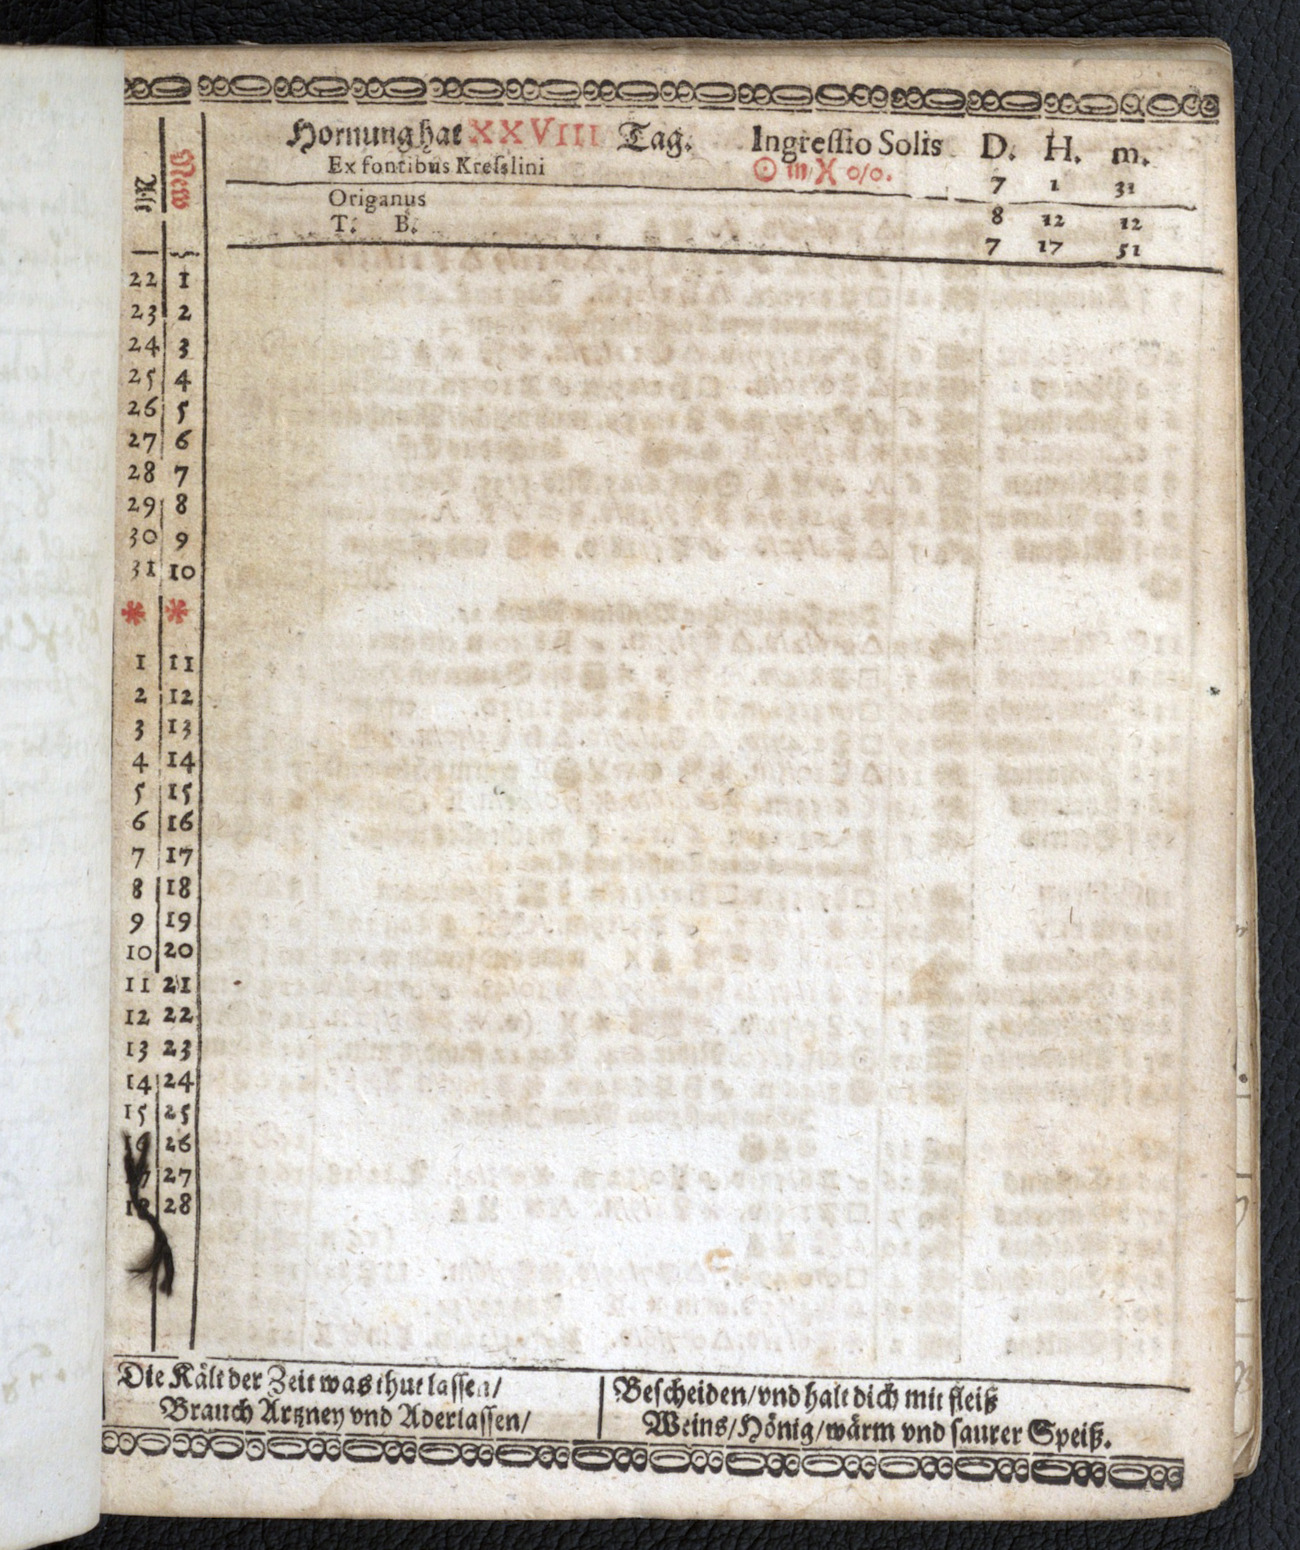 Hornung hat XXVIII Tag. Ingressio Solis D. H. m.
Ex fontibus Kresslini ☉ in ♓ 0/0. 7 1 31
Origanus 8 12 12
T: B. 7 17 51
Alt New
22 1
23 2
24 3
25 4
26 5
27 6
28 7
29 8
30 9
31 10
* *
1 11
2 12
3 13
4 14
5 15
6 16
7 17
8 18
9 19
10 20
11 21
12 22
13 23
14 24
15 25
16 26
17 27
18 28
Die Kält der Zeit was thut lassen/
Brauch Artzney vnd Aderlassen/
Bescheiden/vnd halt dich mit fleiß
Weins/Hönig/wärm vnd saurer Speiß.